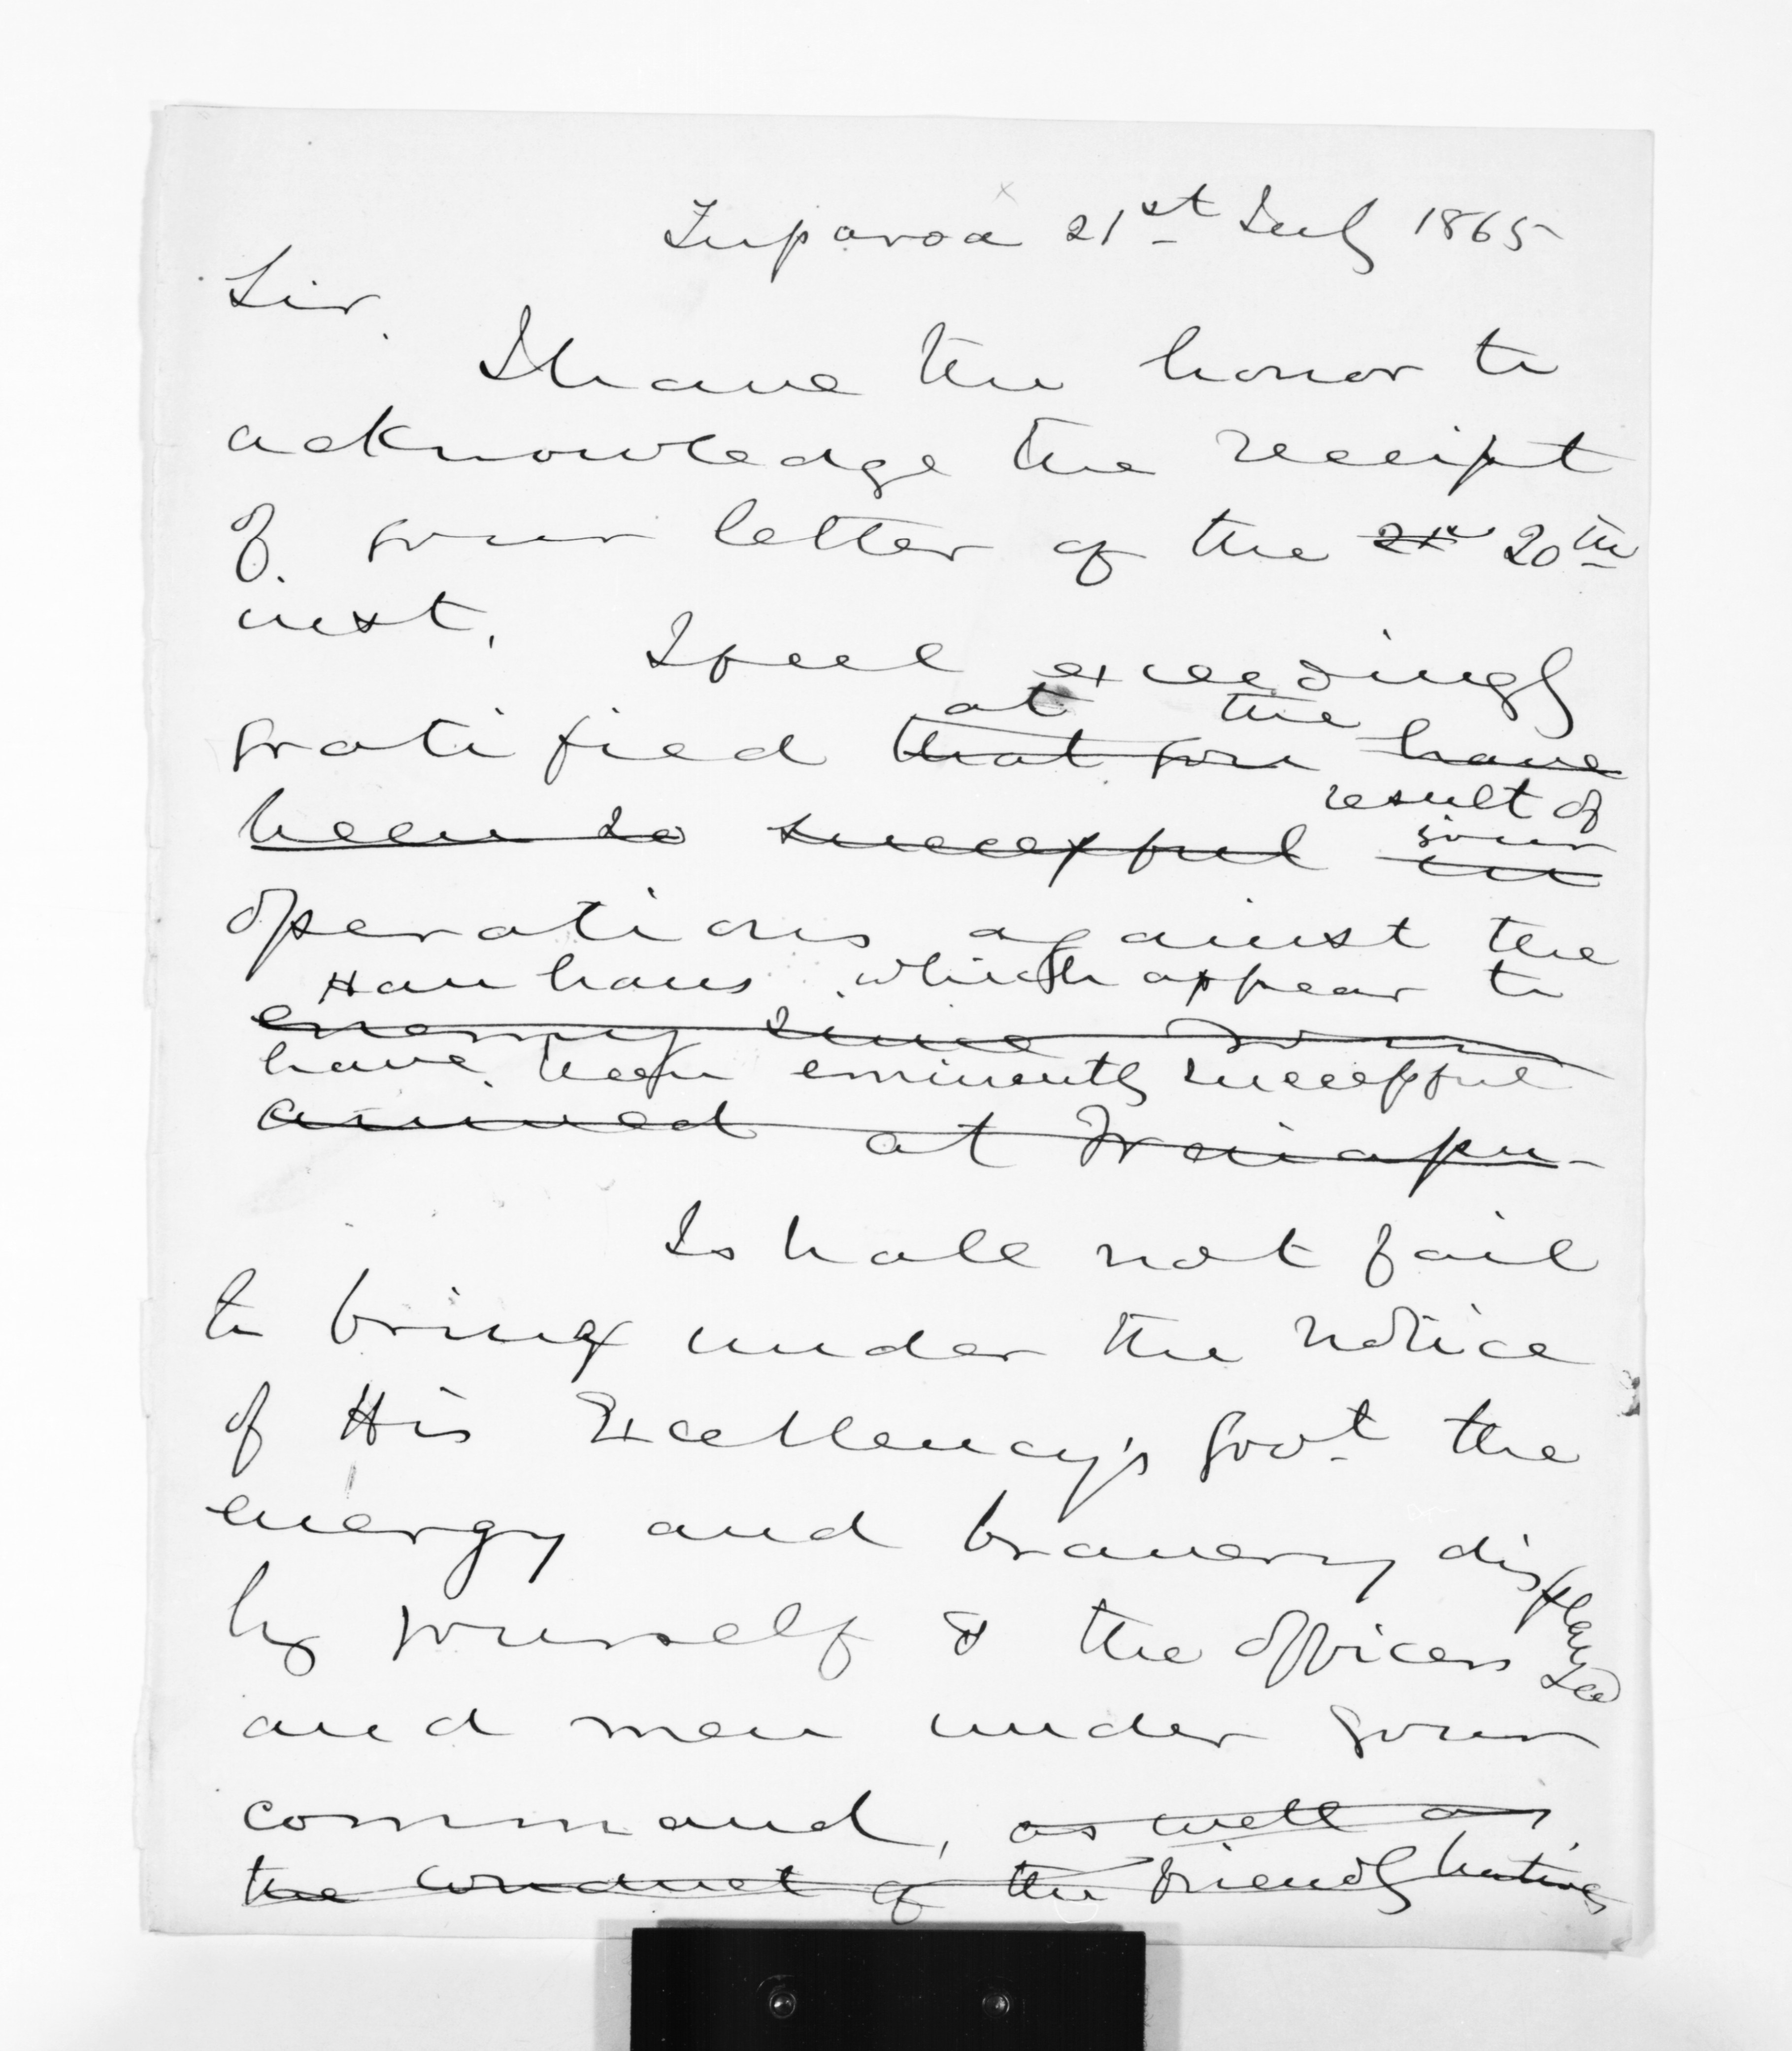 Tuparoa 21st July 1865
Sir.
I have the honor to
acknowledge the receipt
of your letter of the 21st 20th
inst.
I feel exceedingly
at the
gratified that you have
result of
been so successful in
your
operations against the
Hau haus which appear to
enemy since your
have been eminently successful
arrived at Waiapu
I shall not fail
to bring under the notice
of His Excellency's Govt the
energy and bravery displayed
by yourself & the officers
and men under your
command, as well as
the conduct of the friendly natives